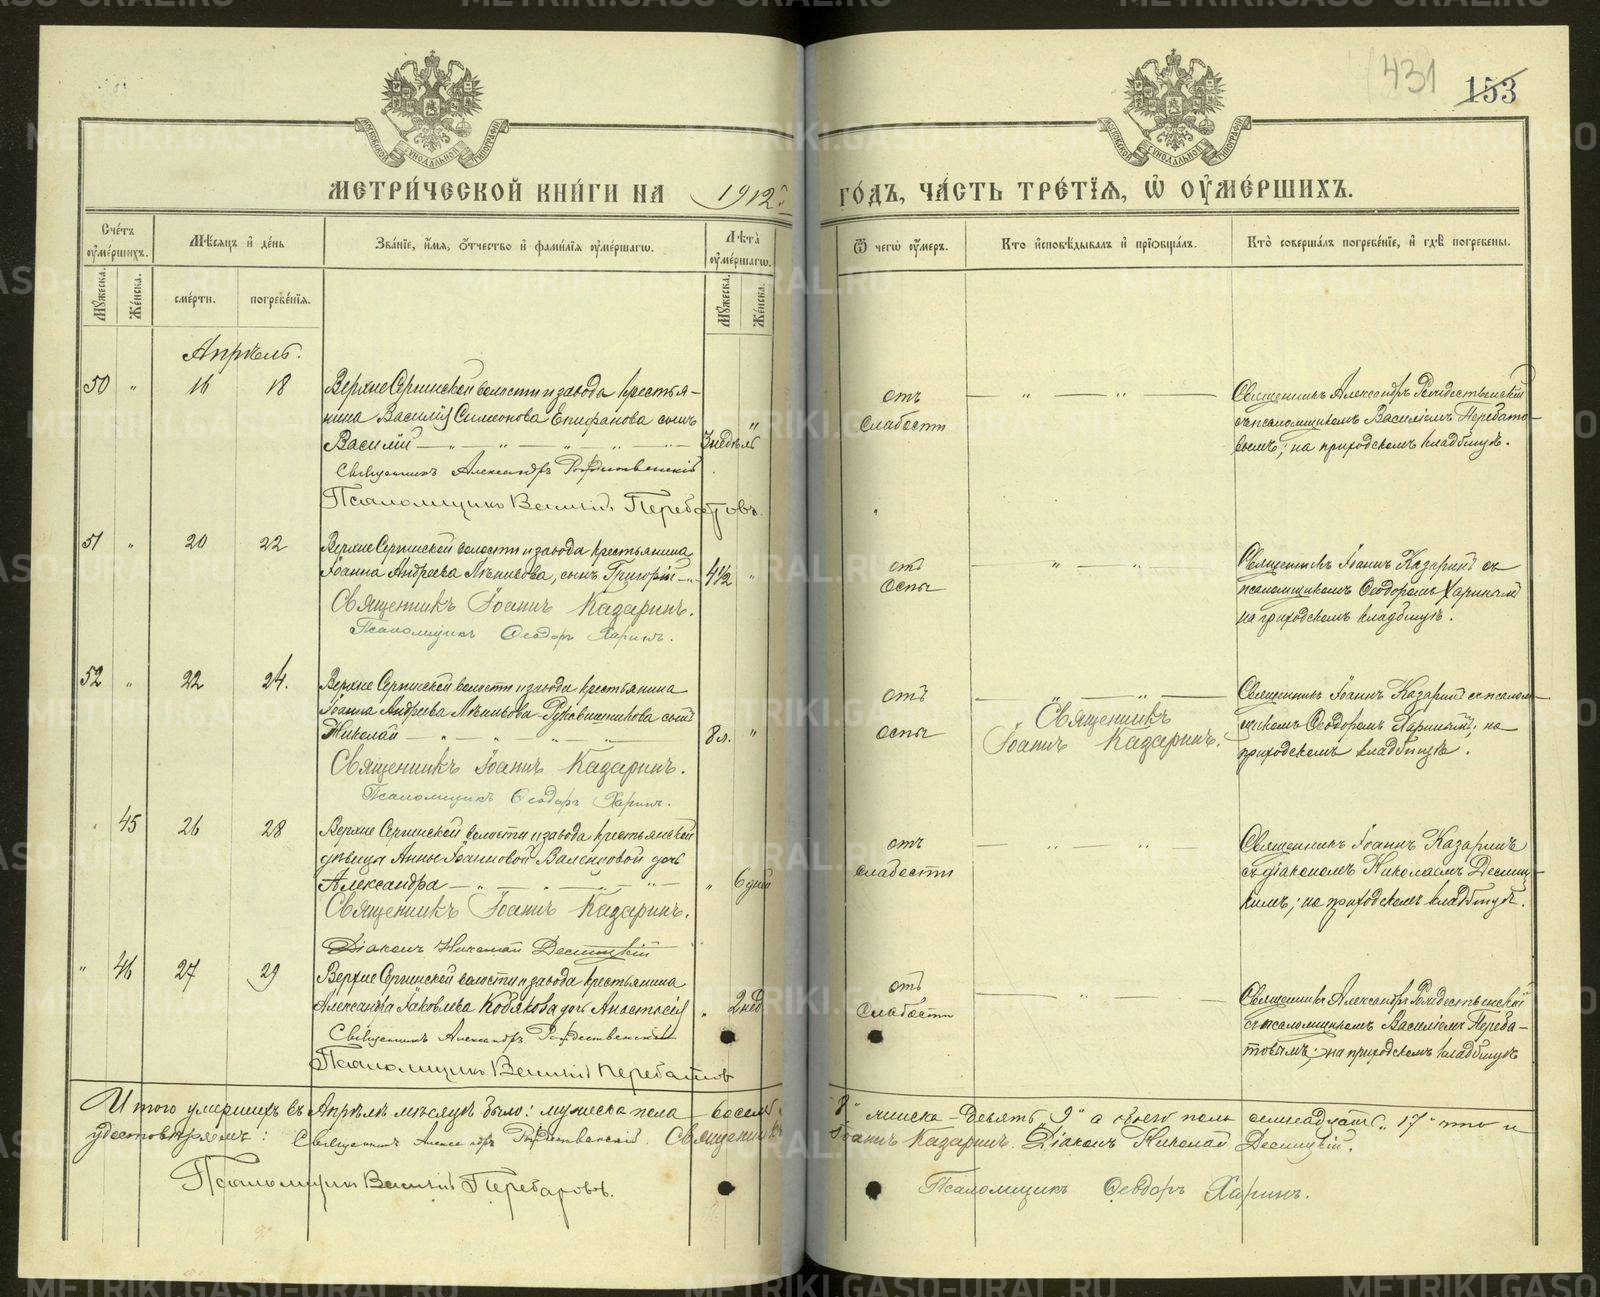 431
153
МОСКОВСКОЙ СУНОДАЛЬНОЙ ТИПОГРАФІИ
МОСКОВСКОЙ СУНОДАЛЬНОЙ ТИПОГРАФІИ
МЕТРИ́ЧЕСКОЙ КНИ́ГИ НА 1912 ГО́ДЪ, ЧА́СТЬ ТРЕ́ТІЯ, Ѽ ОУМЕ́РШИХЪ.
Счетъ оумершихъ.
Мѣсяцъ и день
Званіе, имя, отчество и фамилія оумершагѡ.
Лѣта оумершагѡ.
Ѿ чегѡ оумеръ.
Кто исповѣдывалъ и пріобщалъ.
Кто совершалъ погребеніе, и гдѣ погребены.
Мужеска.
Женска.
смерти.
погребенія.
Мужеска.
Женска.
Апрѣль.
50 " 16 18 Верхне Сергинской волости и завода крестья-
нина Василія Симеонова Епифанова сынъ
Василій — " — " — " — " — 3 недѣль "
отъ
слабости
Священникъ Александръ Рождественскій
съ псаломщикомъ Василіемъ Перебато-
вымъ; на приходскомъ кладбищѣ.
Священникъ Александръ Рождественскій
Псаломщикъ Василій Перебатовъ.
51 " 20 22 Верхне Сергинской волости и завода крестьянина
Іоанна Андреева Мѣникова, сынъ Григорій — 4½ "
отъ
Оспы
Священникъ Іоаннъ Казаринъ съ
псаломщикомъ Ѳеодоромъ Хариным
на приходскомъ кладбищѣ.
Священникъ Іоаннъ Казаринъ.
Псаломщикъ Ѳеодоръ Харинъ.
52 " 22 24. Верхне Сергинской волости и завода крестьянина
Іоанна Андреева сынъ
Николай — " — " — " — " — 8 л. "
отъ
оспы
Священникъ
Іоаннъ Казаринъ.
Священникъ Іоаннъ Казаринъ съ псалом-
щикомъ Ѳеодоромъ Харинымъ; на
приходскомъ кладбищѣ.
Священникъ Іоаннъ Казаринъ.
Псаломщикъ Ѳеодоръ Харинъ.
45 26 28 Верхне Сергинской волости и завода крестьянской
дѣвицы Анны Іоанновой дочь
Александра — " — " — " — " 6 дней
отъ
слабости
Священникъ Іоаннъ Казаринъ
съ діакономъ Николаемъ Десниц-
кимъ; на приходскомъ кладбищѣ.
Священникъ Іоаннъ Казаринъ.
Діаконъ Николай Десницкій
" 46 27 29 Верхне Сергинской волости и завода крестьянина
Александра Іаковлева Кобякова дочь Анастасія " 2 нед
отъ
слабости
Священникъ Александръ Рождественскій
съ псаломщикомъ Василіемъ Переба-
товымъ; на приходскомъ кладбищѣ
Священникъ Александръ Рождественскій
Псаломщикъ Василій Перебатовъ
Итого умершихъ въ Апрѣлѣ мѣсяцѣ было: мужеска пола восемь 8" женска - девять 9" а обоего пола семнадцать „17" что и
удостовѣряемъ: Священникъ Александръ Рождественскій. Священникъ Іоаннъ Казаринъ. Діаконъ Николай Десницкій.
Псаломщикъ Василій Перебатовъ. Псаломщикъ Ѳеодоръ Харинъ.
METRIKI.GASO-URAL.RU